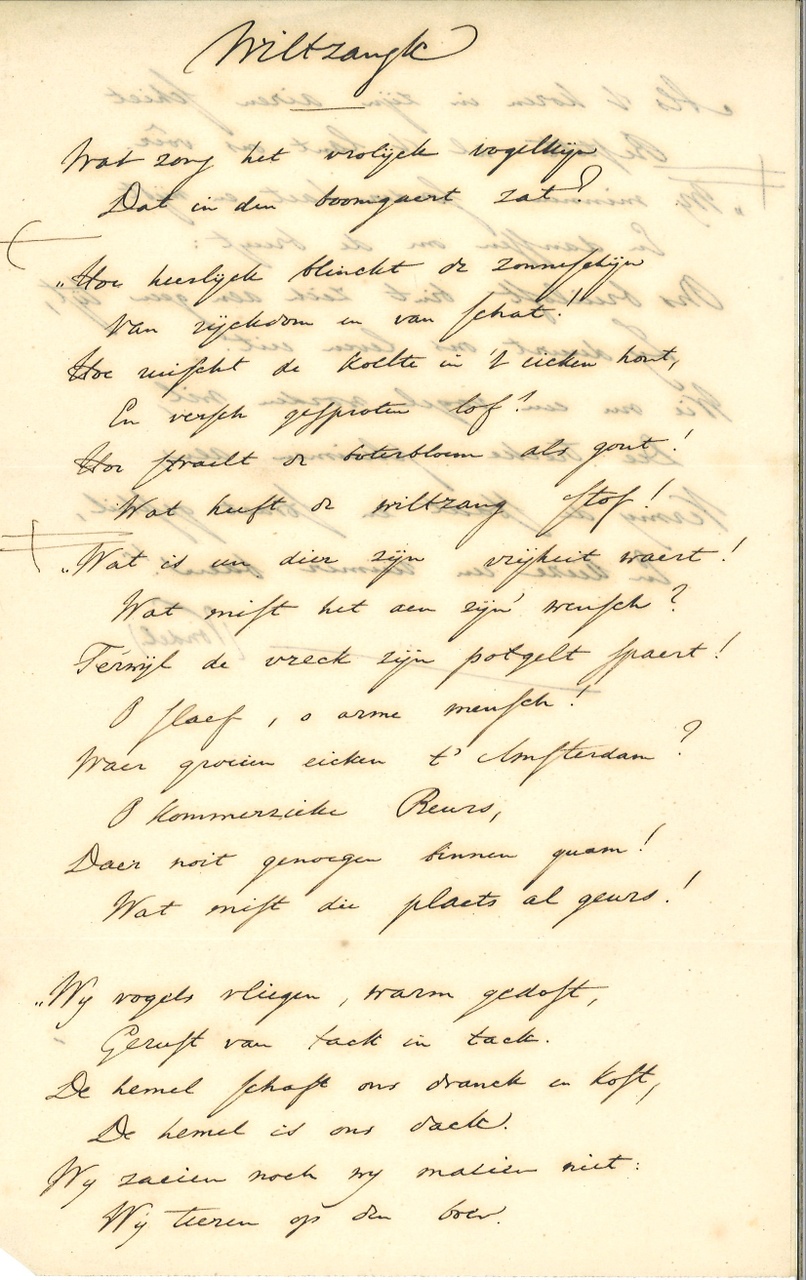 Wiltzangk
Wat zong het vrolijck vogelkijn
Dat in den boomgaert zat?
„Hoe heerlijck blinckt de zonneschijn
Van rijckdom en van schat!
Hoe ruischt de koelte in 't eicken hout,
En versch gesproten lof!
Hoe straelt de boterbloem als gout!
Wat heeft de wiltzang stof!
„Wat is een dier zijn vrijheit waert!
Wat mist het aen zijn' wensch?
Terwijl de vreck zijn potgelt spaert!
O slaef, o arme mensch!
Waer groeien eicken t' Amsterdam?
O kommerzieke Beurs,
Daer noit genoegen binnen quam!
Wat mist die plaets al geurs!
„Wij vogels vliegen, warm gedost,
Gerust van tack in tack.
De hemel schaft ons dranck en kost,
De hemel is ons dack.
Wij zaeien noch wij maeien niet:
Wij teeren op den boer.